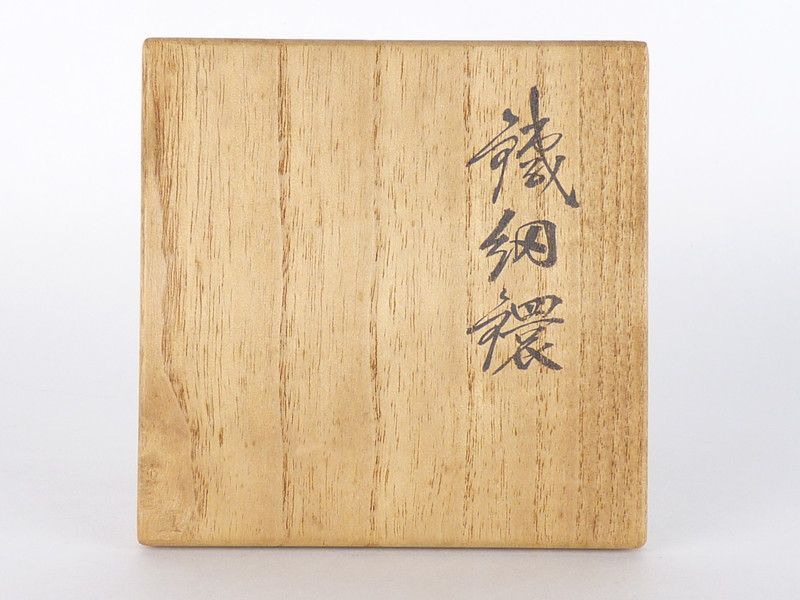 鐵細鐶